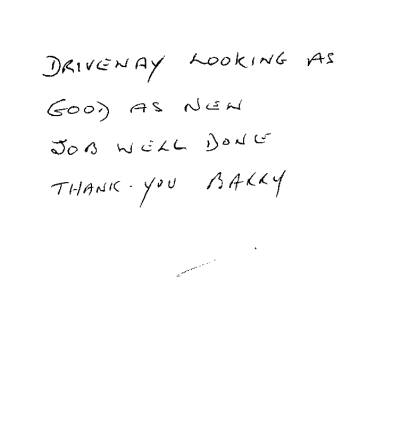 DRIVEWAY LOOKING AS
GOOD AS NEW
JOB WELL DONE
THANK. YOU BARRY